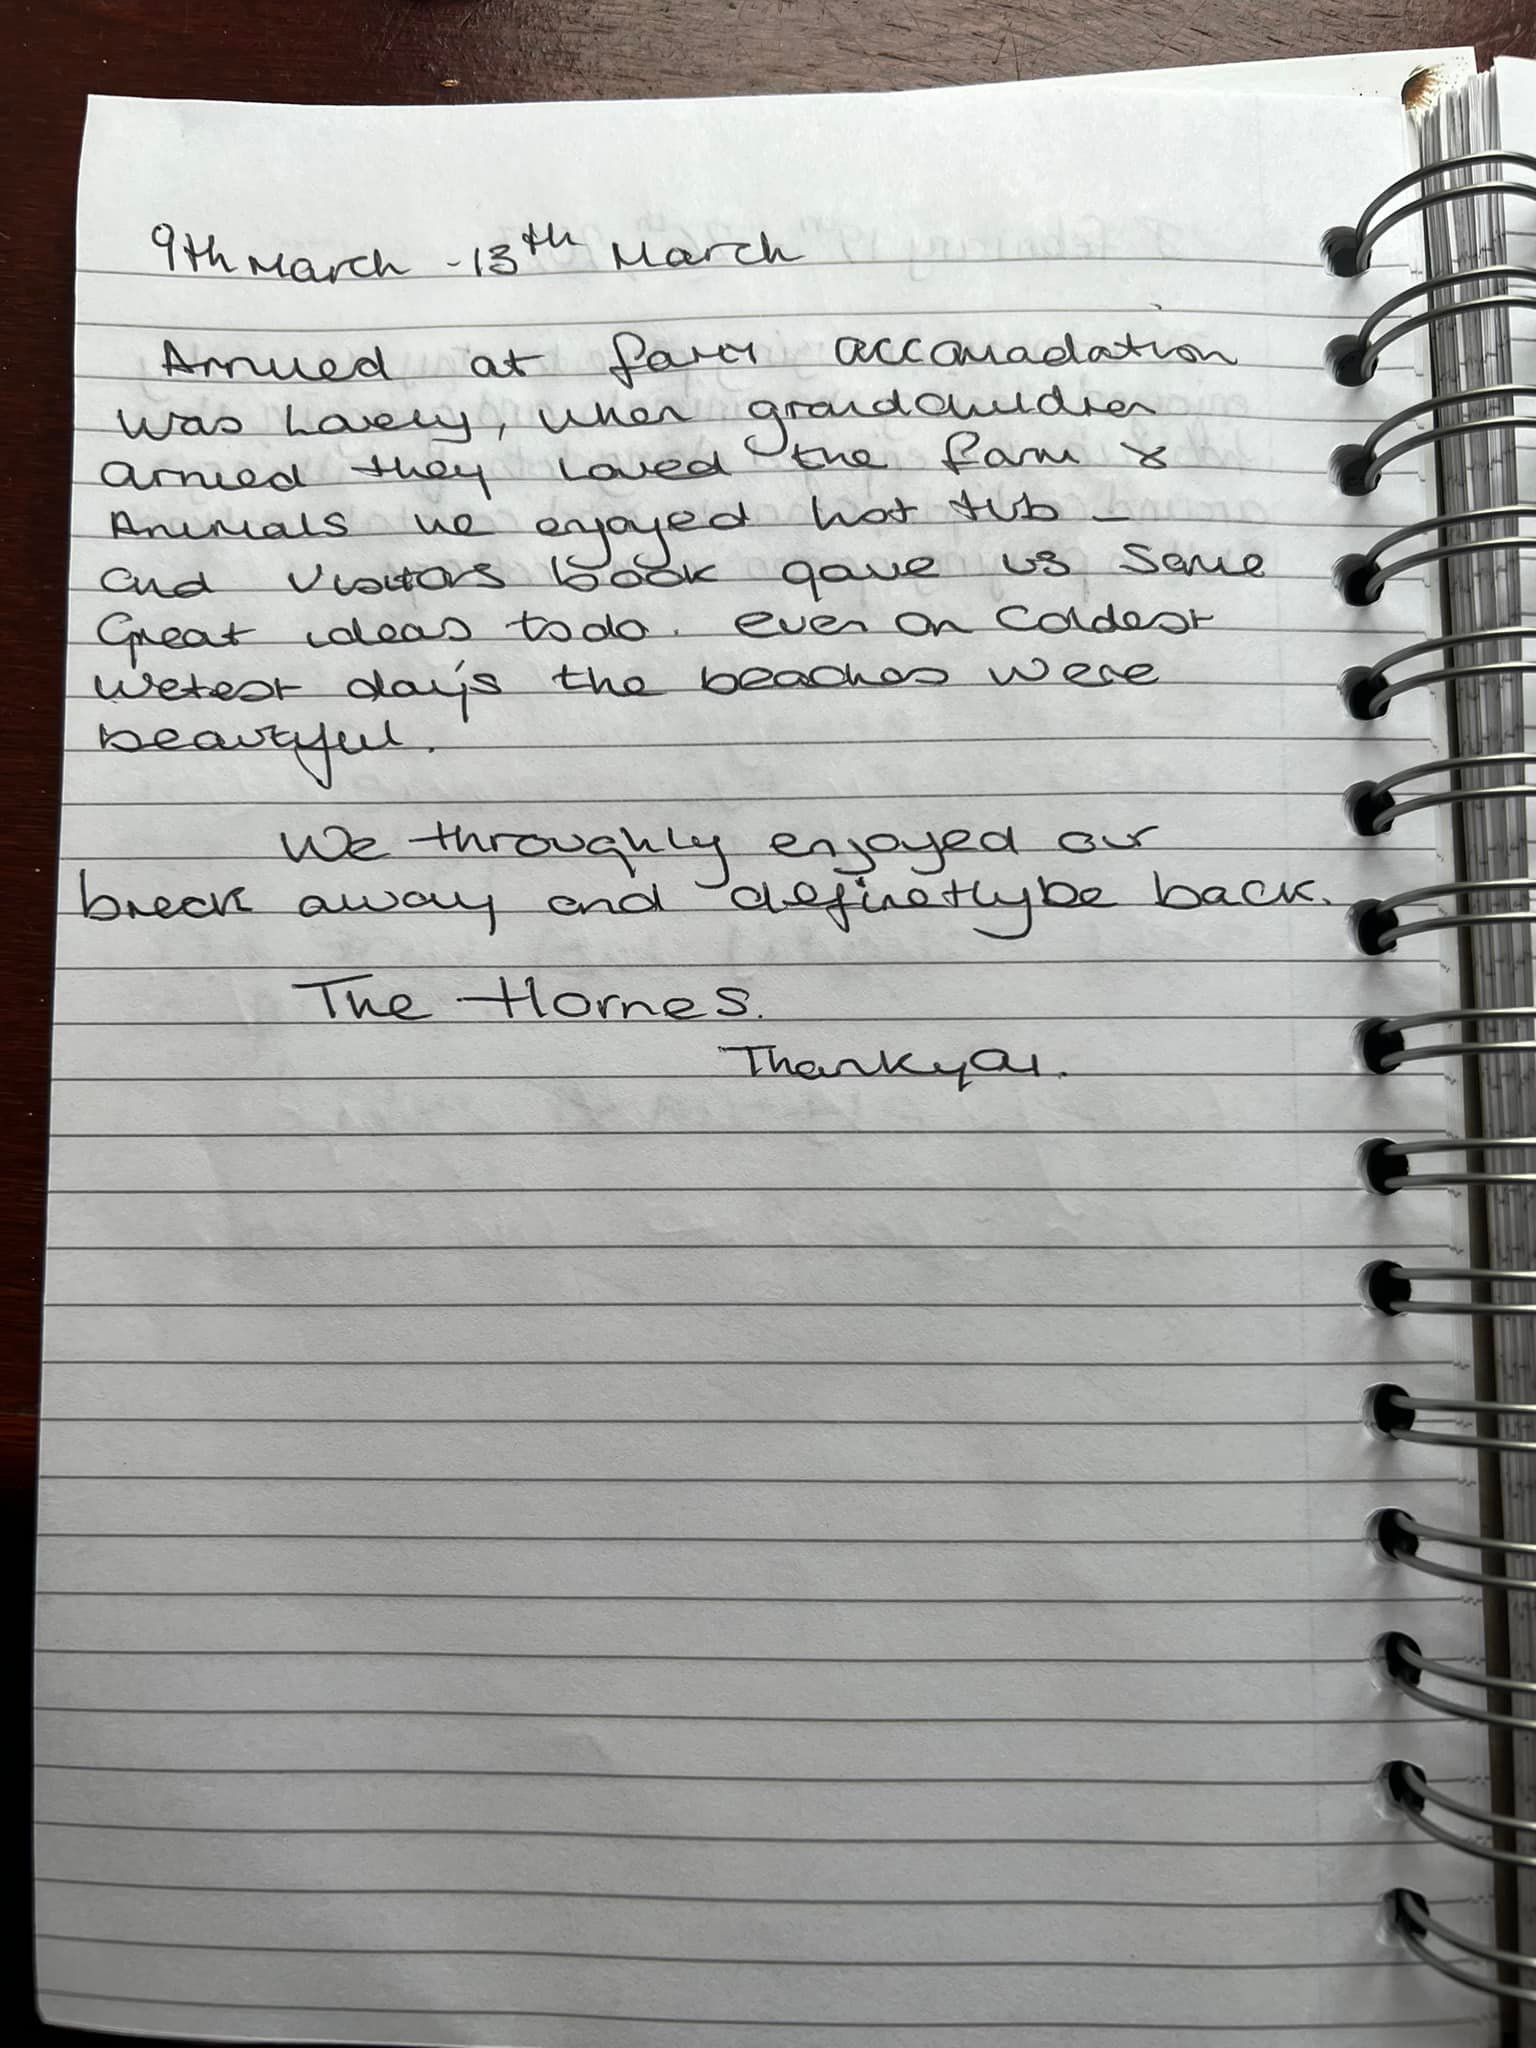 9th March - 13th March
Arrived at farm accomadation
was Lovely, when grandchildren
arrived they loved the farm &
Animals we enjoyed hot tub -
and visitors book gave us some
Great ideas to do. even on Coldest
wetest day's the beaches were
beautyful.
We throughly enjoyed our
break away and definetly be back.
The Hornes.
Thankyou.